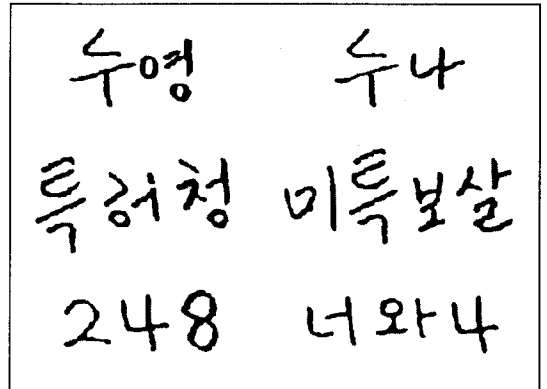 수영 누나
특허청 미륵보살
248 너와나